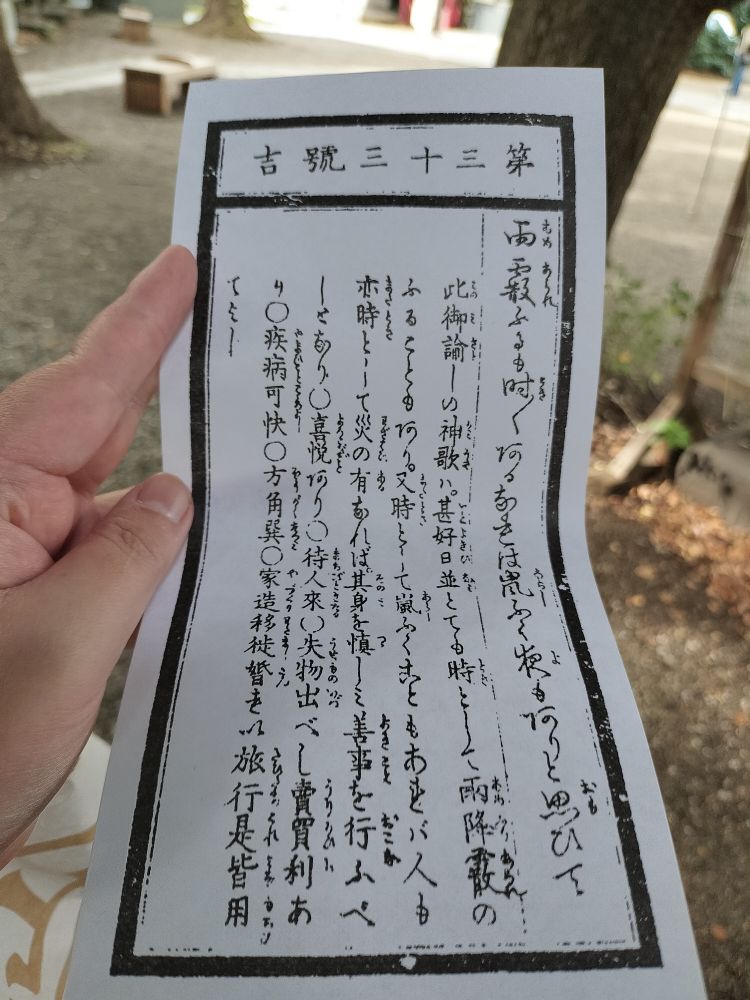 第三十三號吉
雨霰ふるも時〱あるなれは嵐ふく夜もありと思ひて
此御諭しの神歌ハ甚好日並とても時として雨降霰の
ふることもあり。又時として嵐ふくこともあれバ人も
亦時として災の有なれば其身を慎しミ善事を行ふべ
しとなり〇喜悦あり〇待人來〇失物出べし賣買利あ
り〇疾病可快〇方角巽〇家造移徙婚
旅行是皆用
てよし